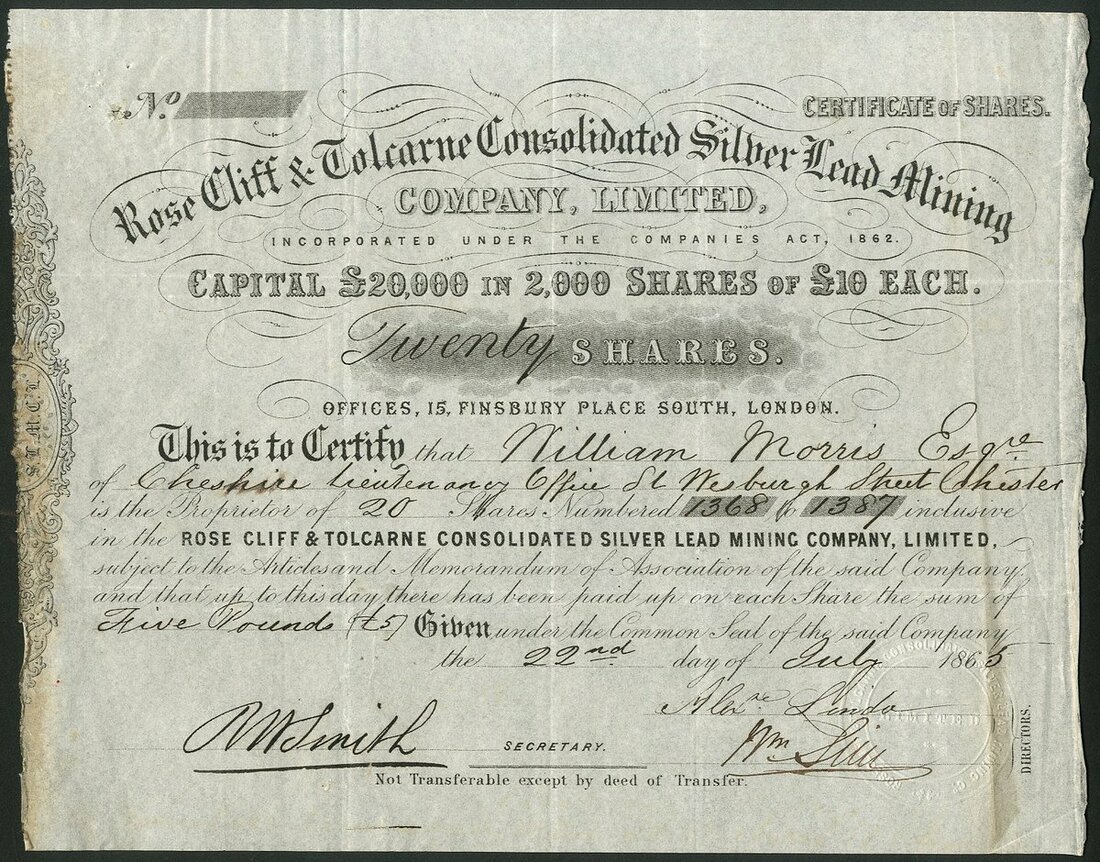 No
CERTIFICATE OF SHARES.
Rose Cliff & Tolcarne Consolidated Silver Lead Mining
COMPANY, LIMITED,
INCORPORATED UNDER THE COMPANIES ACT, 1862.
CAPITAL £20,000 IN 2,000 SHARES OF £10 EACH.
Twenty SHARES.
OFFICES, 15, FINSBURY PLACE SOUTH, LONDON.
This is to Certify that William Morris Esqre
of Cheshire Lieutenancy Office St Wesburgh Street Chester
is the Proprietor of 20 Shares Numbered 1368 to 1387 inclusive
in the ROSE CLIFF & TOLCARNE CONSOLIDATED SILVER LEAD MINING COMPANY, LIMITED,
subject to the Articles and Memorandum of Association of the said Company
and that up to this day there has been paid up on each Share the sum of
Five Pounds (£5) Given under the Common Seal of the said Company
the 22nd day of July 1865
Alexr Lindo
RWSmith SECRETARY.
Wm
DIRECTORS.
Not Transferable except by deed of Transfer.
S.L.M.C.L